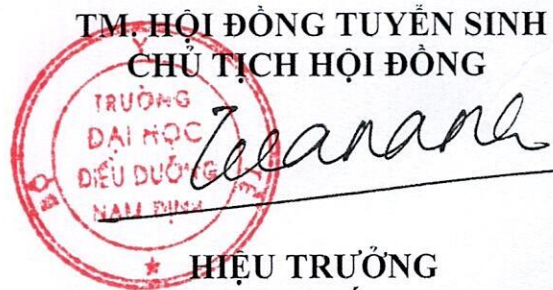 TM. HỘI ĐỒNG TUYỂN SINH
CHỦ TỊCH HỘI ĐỒNG
BỘ Y TẾ
TRƯỜNG
ĐẠI HỌC
ĐIỀU DƯỠNG
NAM ĐỊNH
HIỆU TRƯỞNG